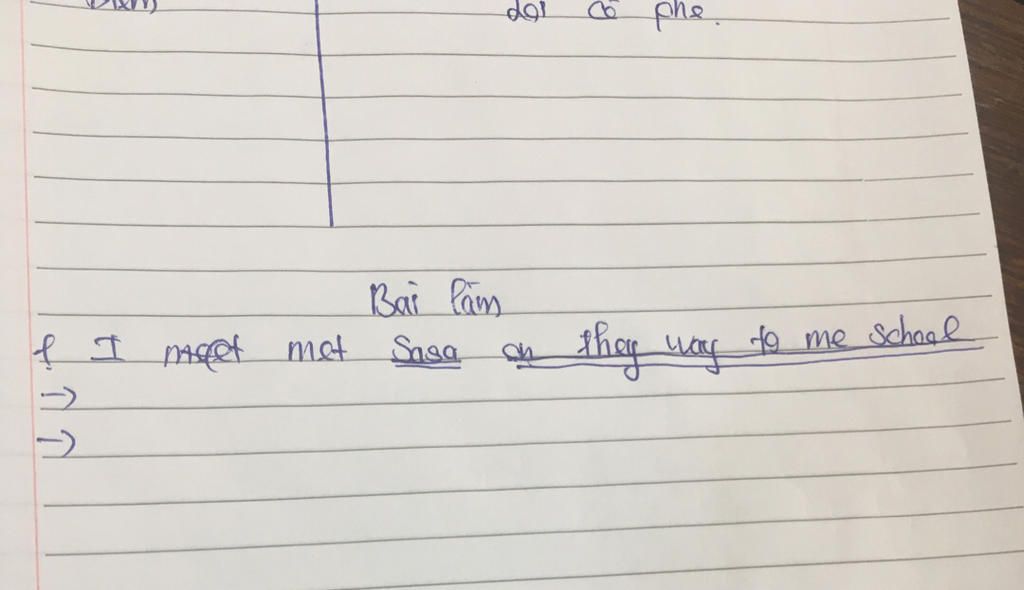 dọi cô phe.
Bài làm
I meet met Sasa on they way to me school
→
→